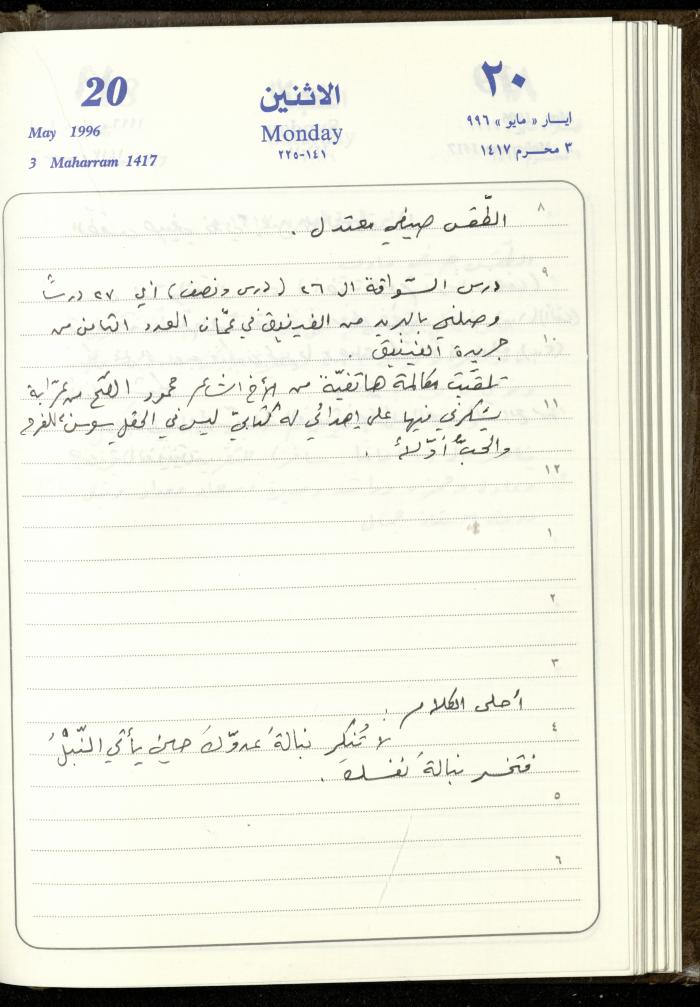 20
الاثنين
٢٠
May 1996
Monday
ايار « مايو » ٩٩٦
3 Maharram 1417
٢٢٥-١٤١
٣ محرم ١٤١٧
٨
الطّقس صيفي معتدل .
٩
درس السّواقة ال ٢٦ (درس ونصف) أي ٢٧ درسًا
وصلني بالبريد من الفينيق في عمّان العدد الثامن من
١٠
جريدة الفينيق
تلقيت مكالمة هاتفيّة من الأخ الشاعر محمود الصّح من عرّابة
١١
يشكرني فيها على إهدائي له كتابيّ ليس في الحقل سوسن، للفرح
والحبُّ أوّلاً .
١٢
١
٢
٣
أحلى الكلام :
٤
لا تُنكِر نبالةَ عدوّكَ حين يأتي النّبْلُ
فتخسر نبالةَ نفسكَ .
٥
٦